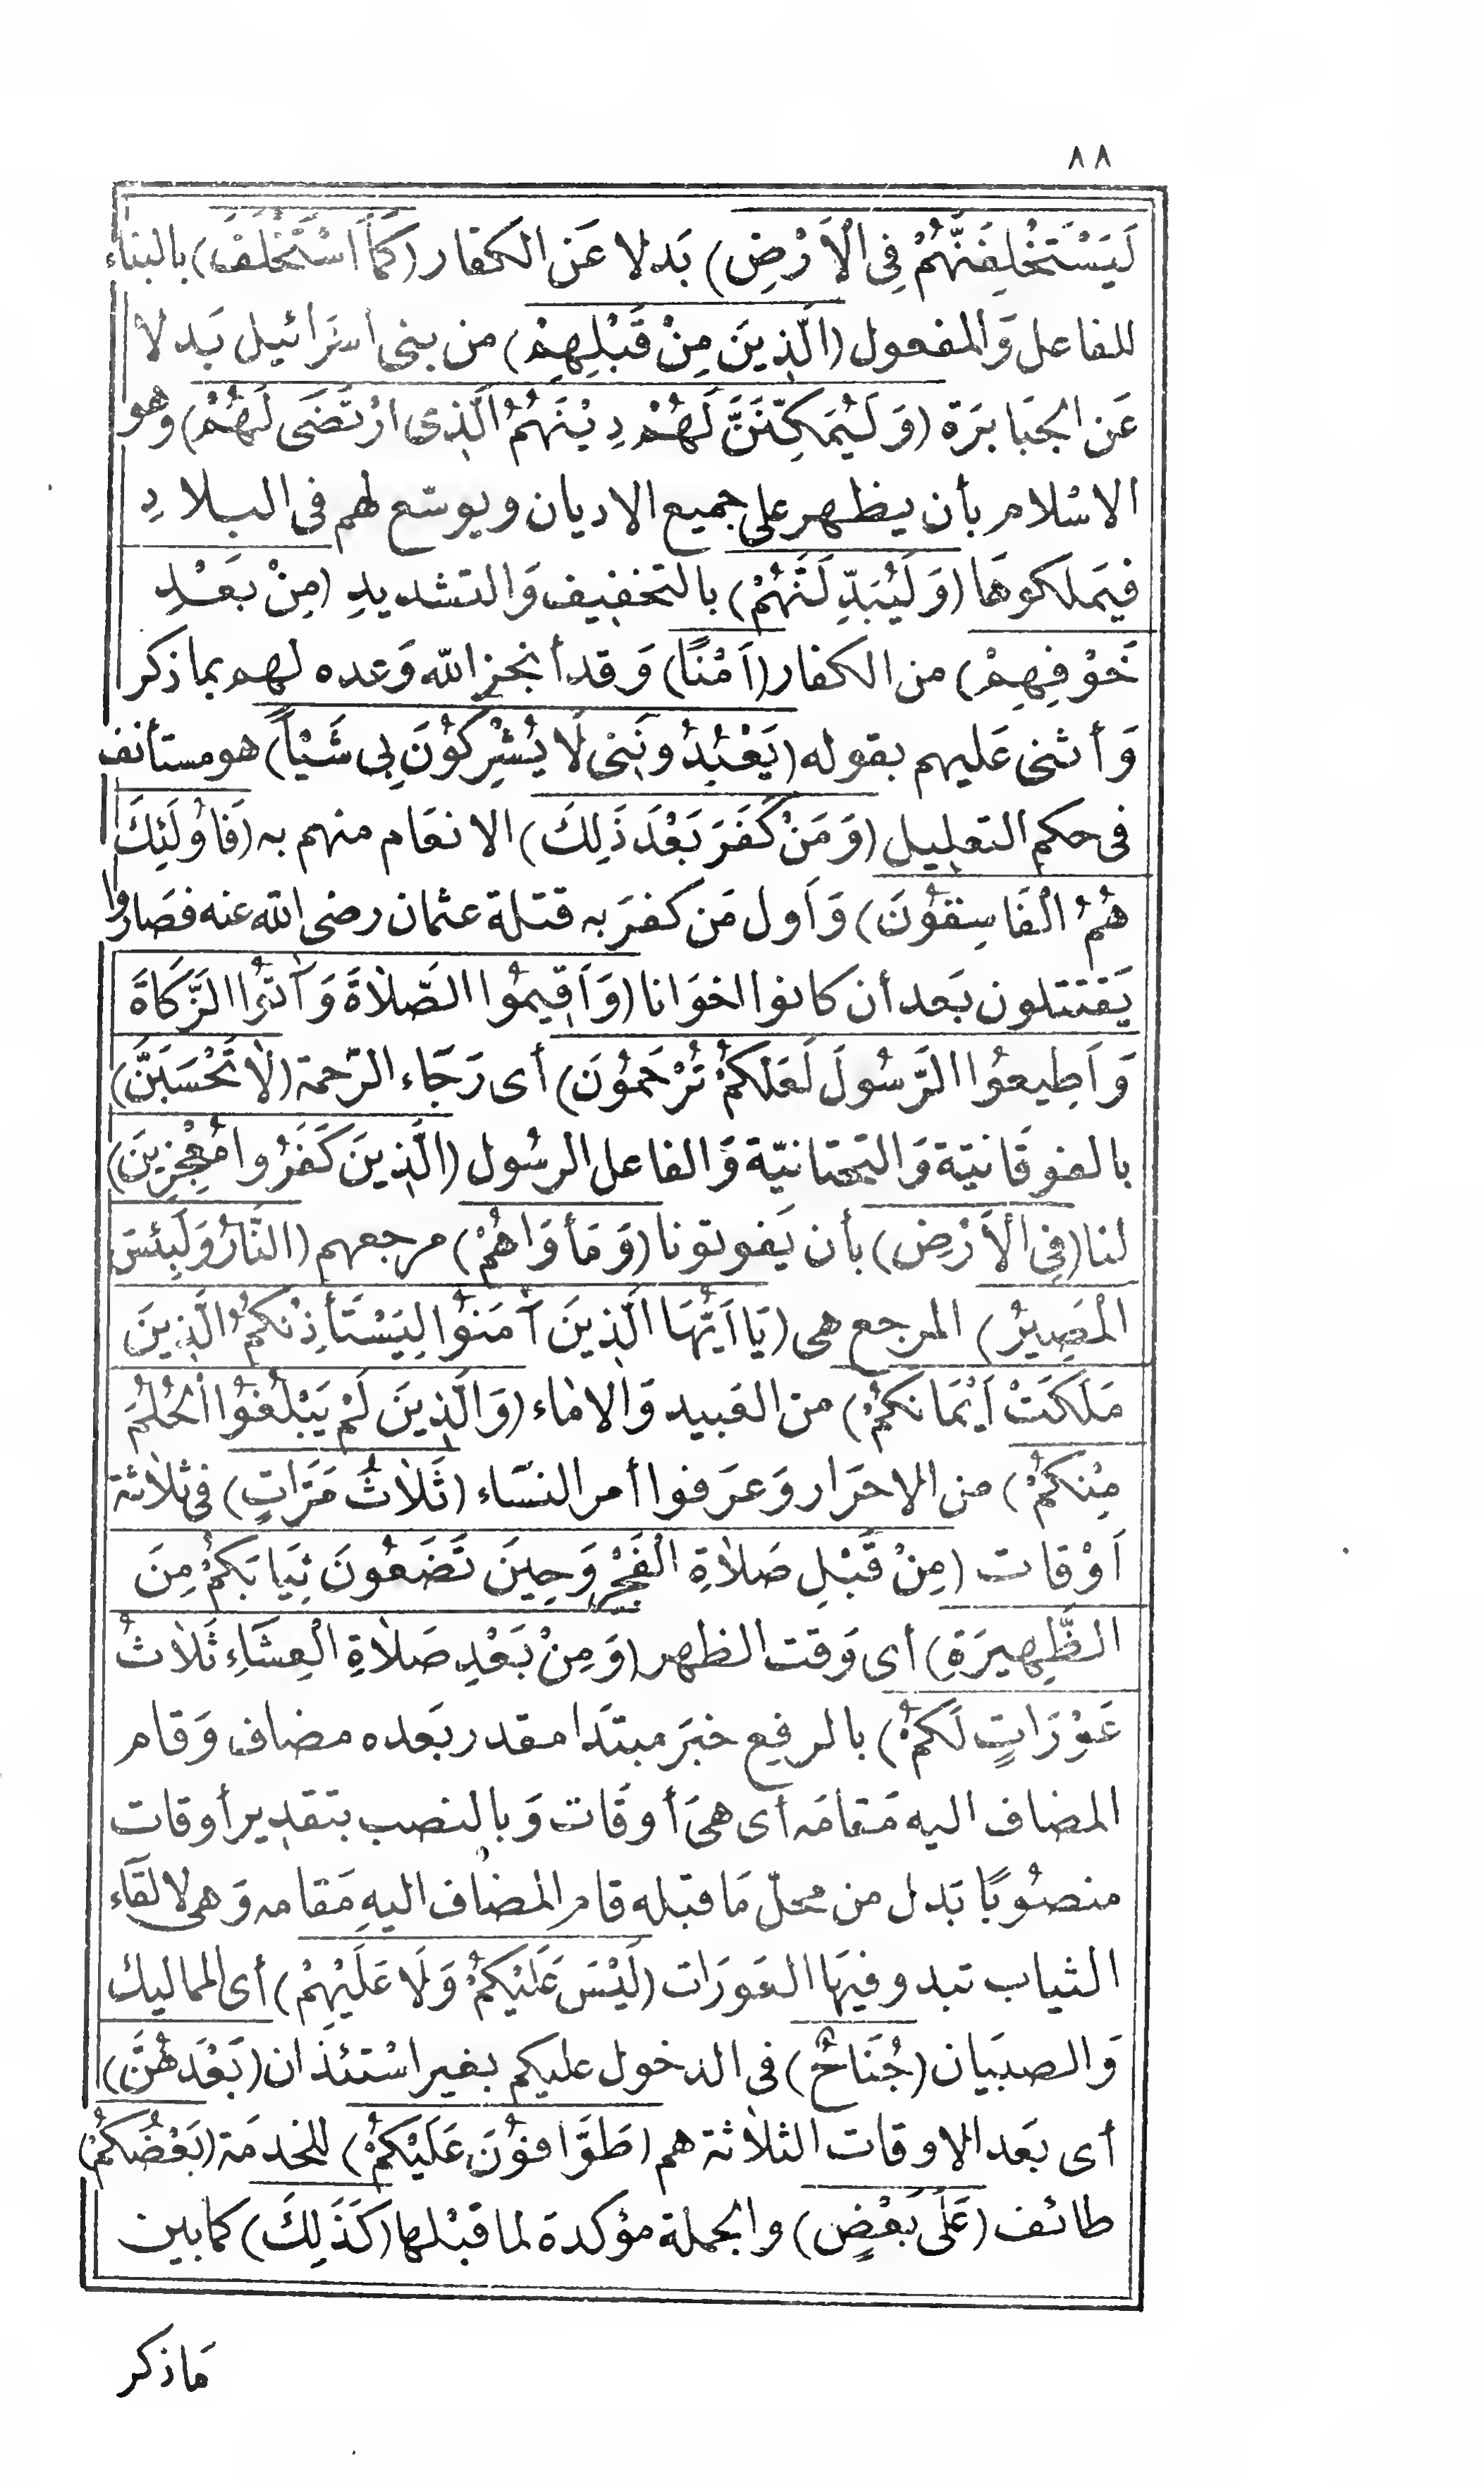 ٨٨
لَيَسْتَخْلِفَنَّهُمْ فِى الْاَرْضِ) بَدلا عَن الكفار (كَمَا اسْتَخْلَفَ) بالبناء
للفاعل وَالمفعول (الَّذِينَ مِنْ قَبْلِهِمْ) من بنى اسرَائيل بَدلا
عَن الجبَابرَة (وَلَيُمَكِّنَنَّ لَهُمْ دِيْنَهُمُ الَّذِى ارْتَضَى لَهُمْ) وَهو
الاسْلام بأن يظهر على جميع الاديان ويوسّع لهم فى البلادِ
فيَملكوهَا (وَلَيُبَدِّلَنَّهُمْ) بالتخفيف وَالتشديدِ (مِنْ بَعْدِ
خَوْفِهِمْ) من الكفار (اَمْنًا) وَقد أنجز الله وَعده لهم بما ذكر
وَأثنى عَليهم بقوله (يَعْبُدُونَنِى لَا يُشْرِكُوْنَ بِى شَيْأً) هو مستأنف
فى حكم التعليل (وَمَنْ كَفَرَ بَعْدَ ذَلِكَ) الانعَام منهم به (فَاُولَئِكَ
هُمُ الْفَاسِقُوْنَ) وَاَول مَن كفرَ به قتلة عثمان رضى الله عنه فصَاروا
يَقتتلون بَعد أن كانوا اخوَانا (وَاَقِيمُوا الصَّلاٰةَ وَآتُوا الزَّكَاةَ
وَاَطِيعُوا الرَّسُولَ لَعَلكُمْ تُرْحَمُوْنَ) أى رَجَاء الرّحمة (لَا تَحْسَبَنَّ)
بالفوقَانيّة وَالتحتانيّة وَالفاعل الرسُول (الَّذِينَ كَفَرُوا مُعْجِزِينَ)
لنا (فِى الْاَرْضِ) بأن يَفوتونا (وَمَأوَاهُمْ) مرجعهم (النَّارُ وَلَبِئسَ
الْمَصِيرُ) المرجع هى (يَا اَيُّهَا الَّذِينَ آمَنُوْا لِيَسْتَأذِنْكُمُ الَّذِينَ
مَلَكَتْ اَيْمَانكُمْ) من العَبيد وَالاماء (وَالَّذِينَ لَمْ يَبْلُغُوْا الْحُلُمَ
مِنْكُمْ) من الاحرَار وَعرَفوا أمر النسَاء (ثَلاٰثَ مَرَّاتٍ) فى ثلاثة
اَوْقات (مِنْ قَبْلِ صَلاٰةِ الْفَجْرِ وَحِينَ تَضَعُونَ ثِيَابَكُمْ مِنَ
الظَّهِيرَةِ) أى وَقت الظهر (وَمِنْ بَعْدِ صَلاٰةِ الْعِشَاءِ ثَلاٰثُ
عَوْرَاتٍ لَكمْ) بالرفع خبَر مبتدَا مقدر بَعده مضاف وَقام
المضاف اليه مَقامَه أى هىَ أوقَات وَبالنصب بتقدير أوقات
منصُوبًا بَدل من محلّ مَا قبله قام المضاف اليهِ مَقامه وَهى لالقَاء
الثياب تبدو فيهَا العَورَات (لَيْسَ عَلَيْكُمْ وَلَا عَلَيْهِمْ) أى المماليك
وَالصبيَان (جُنَاحٌ) فى الدخول عليكم بغير اسْتئذان (بَعْدَهُنَّ)
أى بعَد الاوقات الثلاٰثة هم (طَوَّافوُنَ عَلَيْكُمْ) للخدمَة (بَعْضُكُمْ)
طائف (عَلَى بَعْضٍ) والجملة مؤكدة لما قبْلها (كَذَلِكَ) كما بين
مَا ذكر